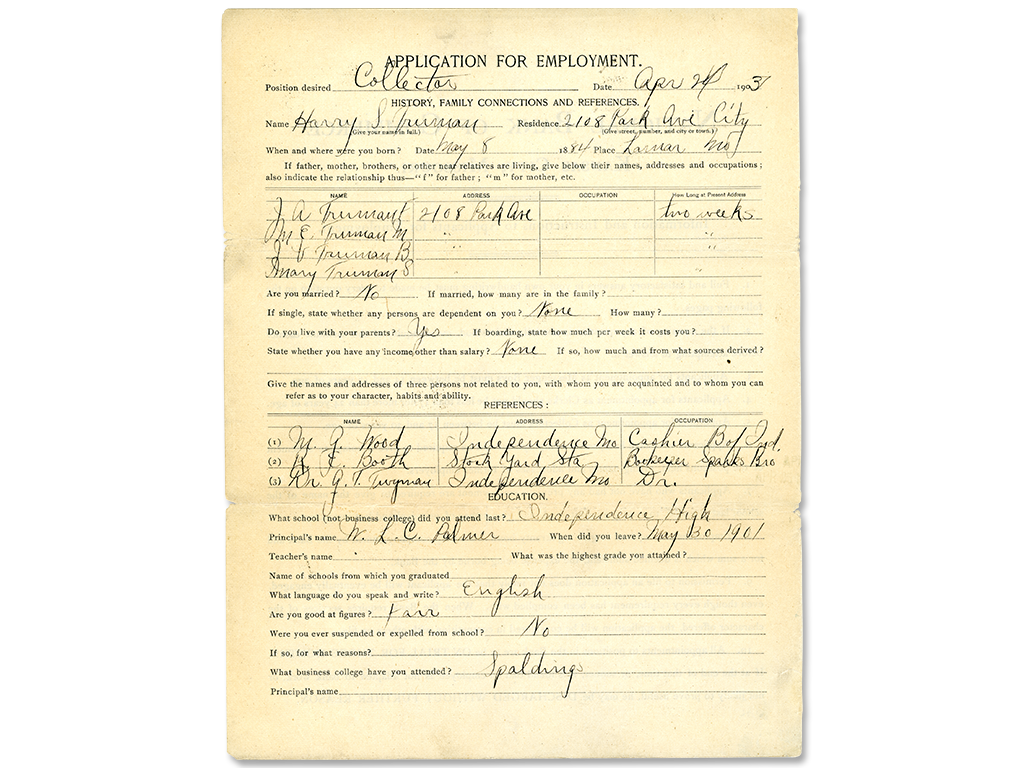 APPLICATION FOR EMPLOYMENT.
Position desired Collector Date Apr 24 1903
HISTORY, FAMILY CONNECTIONS AND REFERENCES.
Name Harry S. Truman Residence 2108 Park Ave City
(Give your name in full.) (Give street, number, and city or town.)
When and where were you born? Date May 8 1884 Place Lamar Mo
If father, mother, brothers, or other near relatives are living, give below their names, addresses and occupations;
also indicate the relationship thus—"f" for father; "m" for mother, etc.
NAME ADDRESS OCCUPATION How Long at Present Address
J A Truman f 2108 Park Ave two weeks
M E Truman M " "
J V Truman B " "
Mary Truman S "
Are you married? No If married, how many are in the family?
If single, state whether any persons are dependent on you? None How many?
Do you live with your parents? Yes If boarding, state how much per week it costs you?
State whether you have any income other than salary? None If so, how much and from what sources derived?
Give the names and addresses of three persons not related to you, with whom you are acquainted and to whom you can
refer as to your character, habits and ability.
REFERENCES:
NAME ADDRESS OCCUPATION
(1) M. G. Wood Independence Mo Cashier B of Ind.
(2) Booth Stock Yard Sta Sparks Bro
(3) Dr. G. T. Twyman Independence Mo Dr.
EDUCATION.
What school (not business college) did you attend last? Independence High
Principal's name W. L. C. Palmer When did you leave? May 30 1901
Teacher's name What was the highest grade you attained?
Name of schools from which you graduated
What language do you speak and write? English
Are you good at figures? Fair
Were you ever suspended or expelled from school? No
If so, for what reasons?
What business college have you attended? Spaldings
Principal's name